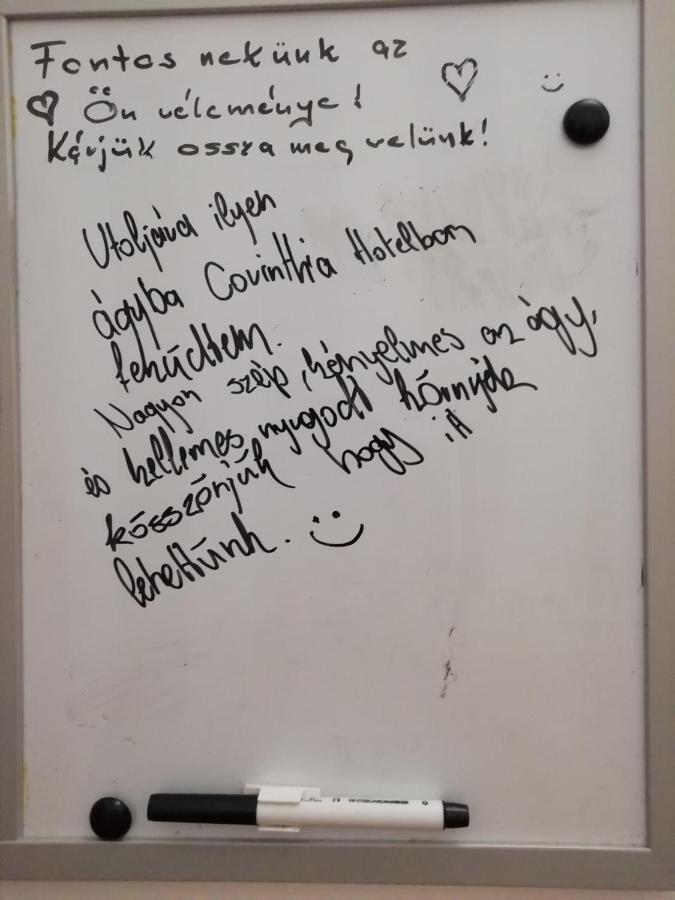 Fontos nekünk az
Ön véleménye!
Kérjük ossza meg velünk!
Utoljára ilyen
ágyba Corinthia Hotelban
feküdtem.
Nagyon szép, kényelmes az ágy,
és kellemes nyugodt környék
kösszönjük hogy itt
lehettünk.
WHITEBOARDMARKER